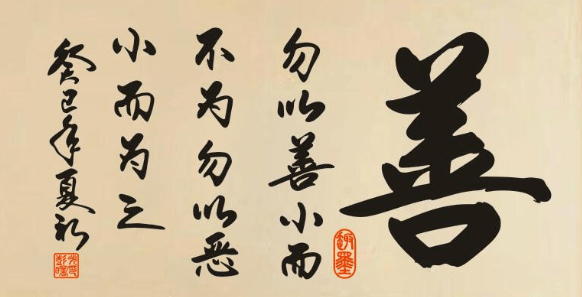 善
勿以善小而
不为勿以恶
小而为之
癸巳年夏初